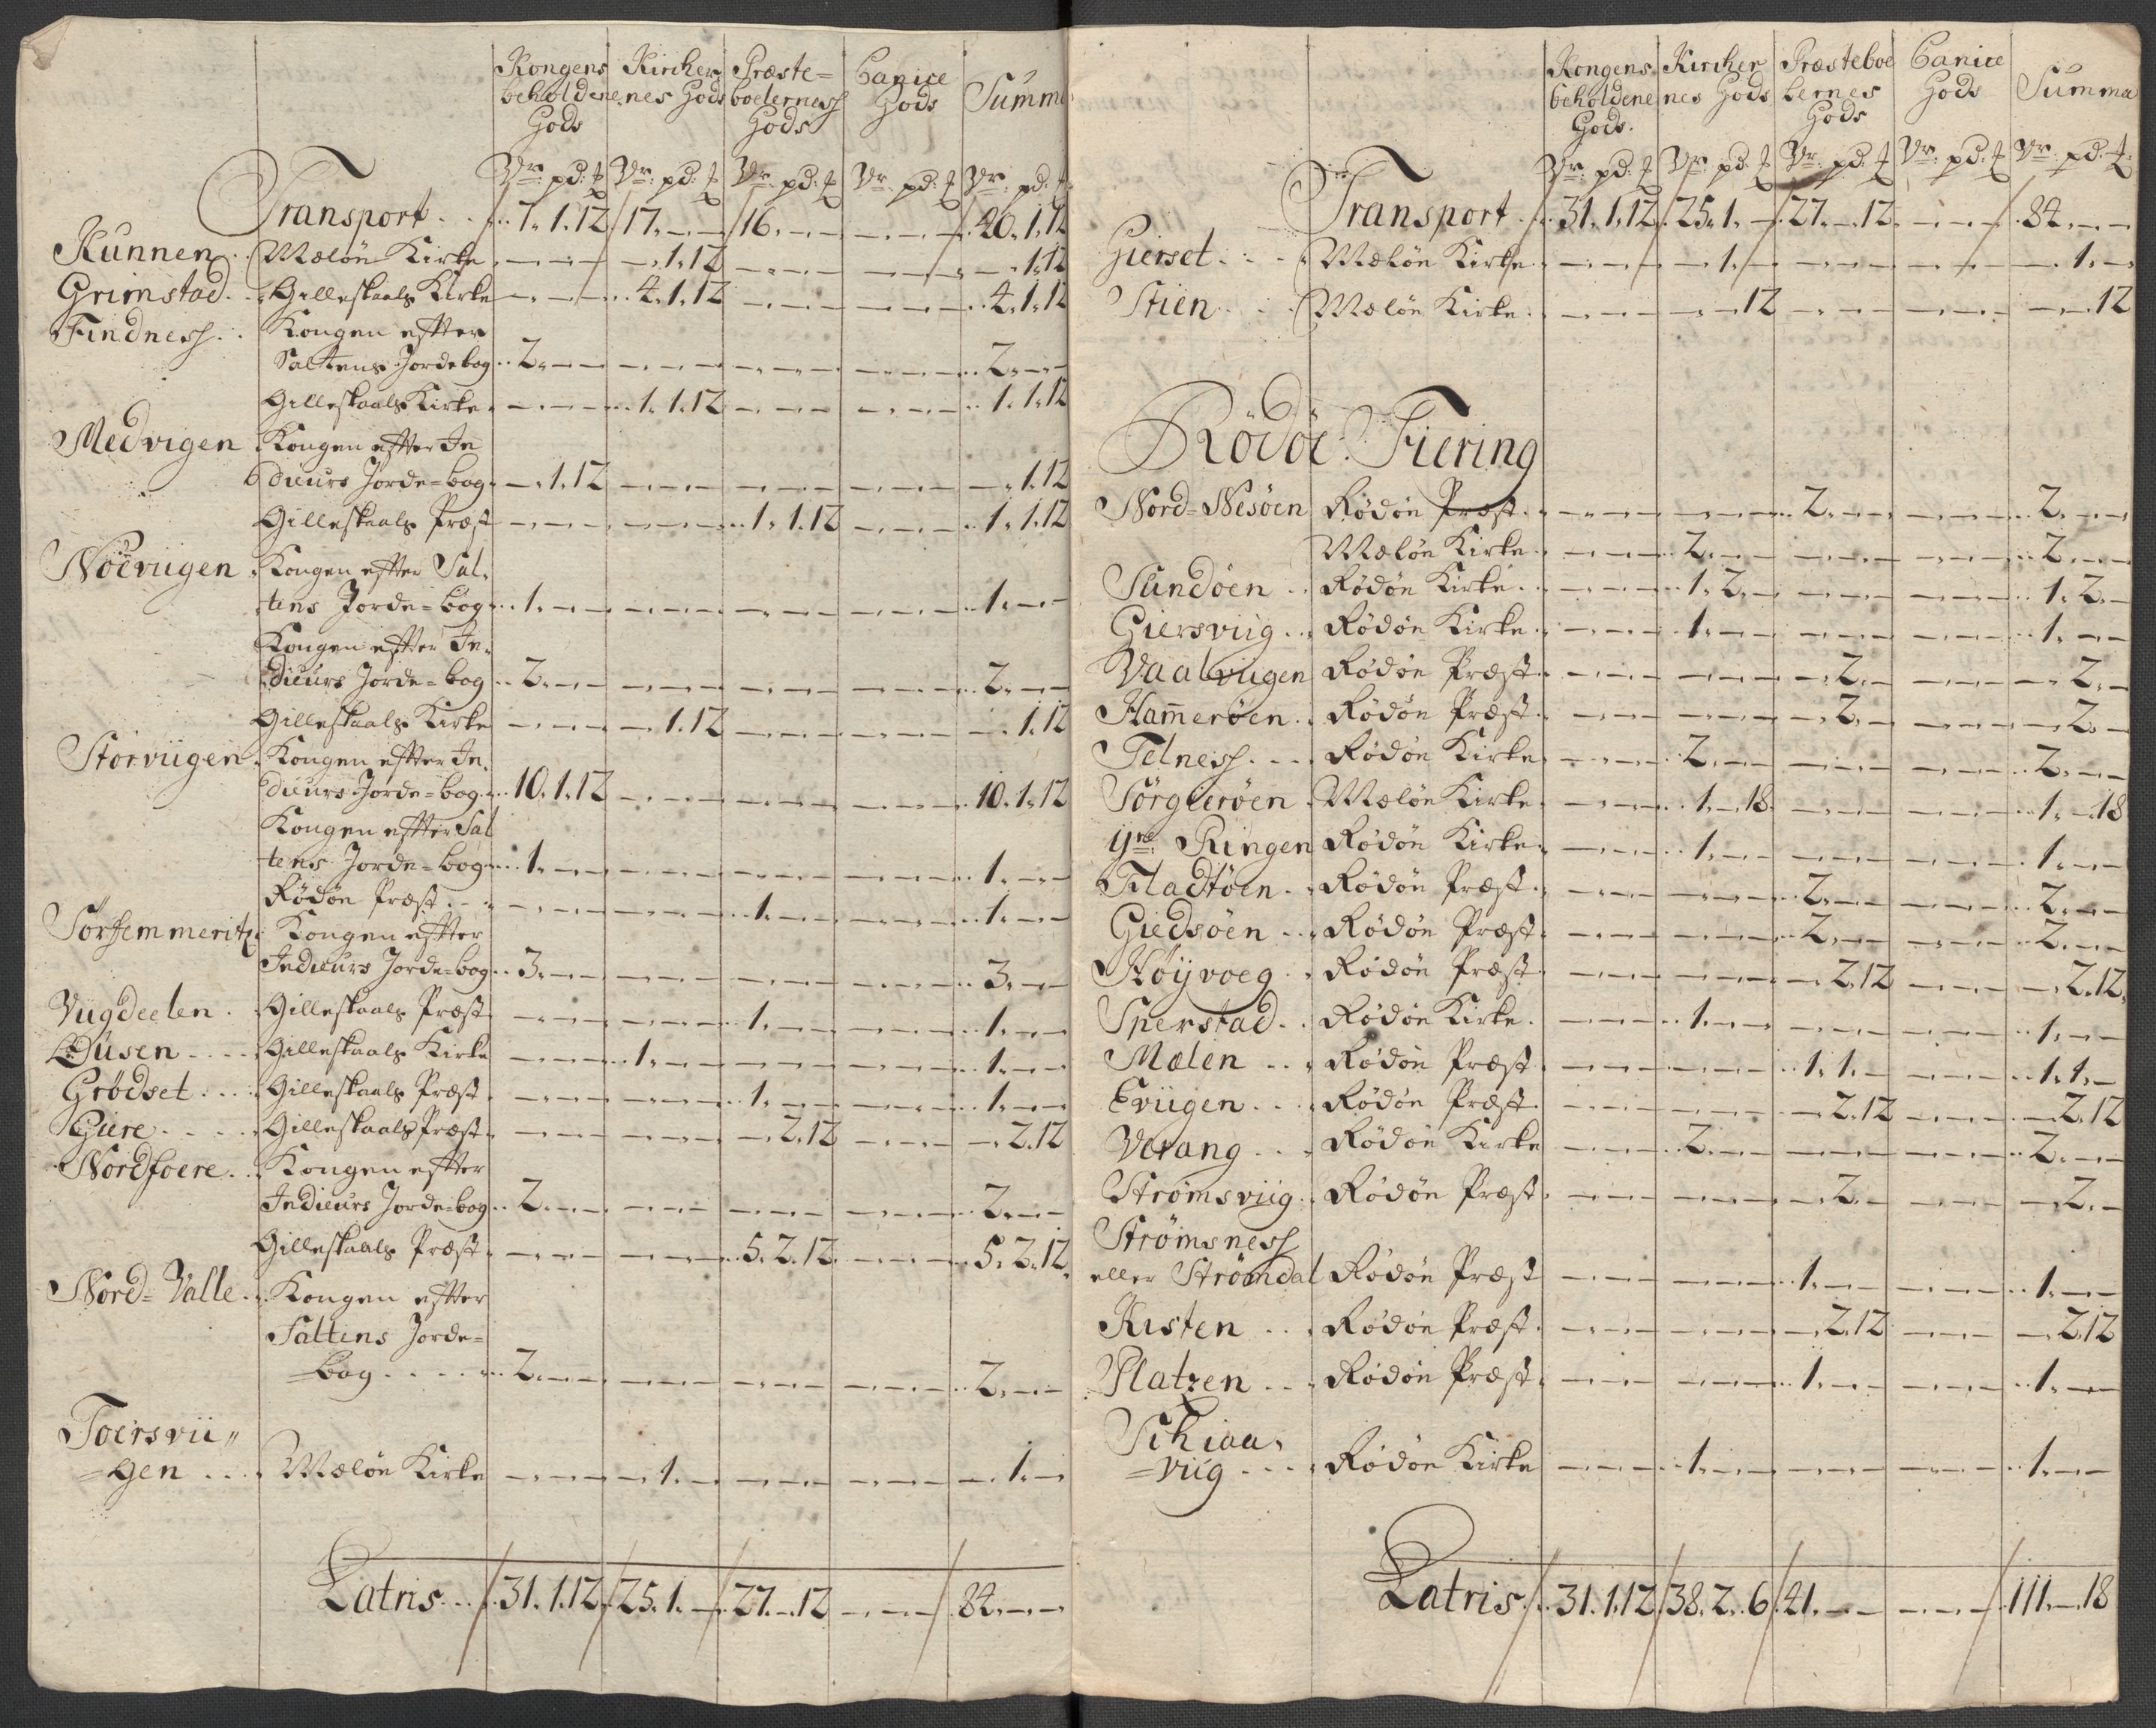 Kongens beholdene Gods | Kirchernes Gods | Præste=boelerness Gods | Canice Gods | Summa
Vr: pd: | Vr: pd: | Vr: pd: | Vr: pd: | Vr: pd:
Transport . . 7. 1. 12 | 17. — — | 16. — — | — — — | 40. 1. 12
Kunnen . . Meløen Kirke . — — — | — 1. 12 | — — — | — — — | — 1. 12
Grimstad . . Gilleskaals Kirke — — — | 4. 1. 12 | — — — | — — — | 4. 1. 12
Findness . . Kongen effter
Saltens Jordebog . . 2. — — | — — — | — — — | — — — | 2. — —
Gilleskaals Kirke . — — — | 1. 1. 12 | — — — | — — — | 1. 1. 12
Medvigen . Kongen effter In
dieurs Jorde=bog . — 1. 12 | — — — | — — — | — — — | — 1. 12
Gilleskaals Præst — — — | — — — | 1. 1. 12 | — — — | 1. 1. 12
Nöeviigen . Kongen effter Sal,
tens Jorde=bog . . 1. — — | — — — | — — — | — — — | 1. — —
Kongen effter In,
dieurs Jorde=bog . . 2. — — | — — — | — — — | — — — | 2. — —
Gilleskaals Kirke — — — | — 1. 12 | — — — | — — — | — 1. 12
Storviigen . Kongen effter In,
dieurs Jorde=bog . . 10. 1. 12 | — — — | — — — | — — — | 10. 1. 12
Kongen effter Sal
tens Jorde=bog . . 1. — — | — — — | — — — | — — — | 1. — —
Rødøn Præst . . — — — | — — — | 1. — — | — — — | 1. — —
Sörfemmeritz . Kongen effter
Indieurs Jorde=bog . . 3. — — | — — — | — — — | — — — | 3. — —
Viigdeelen . Gilleskaals Præst — — — | — — — | 1. — — | — — — | 1. — —
Øusen . . . Gilleskaals Kirke — — — | 1. — — | — — — | — — — | 1. — —
Grödset . . . Gilleskaals Præst — — — | — — — | 1. — — | — — — | 1. — —
Giere . . . . Gilleskaals Præst . — — — | — — — | — 2. 12 | — — — | — 2. 12
Nordfoere . . Kongen effter
Indieurs Jorde=bog . . 2. — — | — — — | — — — | — — — | 2. — —
Gilleskaals Præst . — — — | — — — | 5. 2. 12 | — — — | 5. 2. 12
Nord=Valle . . Kongen effter
Saltens Jorde=
=bog . . . . . 2. — — | — — — | — — — | — — — | 2. — —
Toersvii„
=gen . . . Meløn Kirke — — — | — 1. — | — — — | — — — | — 1. —
Latris . . 31. 1. 12 | 25. 1. — | 27. — 12 | — — — | 84. — —
Kongens beholdene Gods. | Kirchernes Gods | Præsteboelernes Gods | Canice Gods | Summa
Vr: pd: | Vr: pd: | Vr: pd: | Vr: pd: | Vr: pd:
Transport . . 31. 1. 12 | 25. 1. — | 27. — 12 | — — — | 84. — —
Gierset . . . Meløn Kirke . — — — | — 1. — | — — — | — — — | — 1. —
Stien . . . Meløn Kirke . — — — | — — 12 | — — — | — — — | — — 12
Rödöe Fiering
Nord=Nesöen Rødøn Præst . — — — | — — — | 2. — — | — — — | 2. — —
Meløn Kirke . — — — | 2. — — | — — — | — — — | 2. — —
Sundöen . . Rødøn Kirke . — — — | 1. 2. — | — — — | — — — | 1. 2. —
Giersviig . . Rødøn Kirke . — — — | 1. — — | — — — | — — — | 1. — —
Vaalviigen Rødøn Præst . — — — | — — — | — 2. — | — — — | — 2. —
Hameröen . . Rødøn Præst . — — — | — — — | — 2. — | — — — | — 2. —
Telness . . . Rødøn Kirke . — — — | 2. — — | — — — | — — — | 2. — —
Sörgieröen . Meløn Kirke . — — — | 1. — 18 | — — — | — — — | 1. — 18
Yre: Ringen Rødøn Kirke . — — — | 1. — — | — — — | — — — | 1. — —
Fladtöen . . Rødøn Præst . — — — | — — — | 2. — — | — — — | 2. — —
Giedsöen . . Rødøn Præst . — — — | — — — | 2. — — | — — — | 2. — —
Höyvoeg . . Rødøn Præst . — — — | — — — | — 2. 12 | — — — | — 2. 12
Sperstad . . Rødøn Kirke . — — — | 1. — — | — — — | — — — | 1. — —
Mælen . . . Rødøn Præst . — — — | — — — | 1. 1. — | — — — | 1. 1. —
Eviigen . . . Rødøn Præst . — — — | — — — | — 2. 12 | — — — | — 2. 12
Verang . . . Rødøn Kirke — — — | 2. — — | — — — | — — — | 2. — —
Strömsviig . . Rødøn Præst . — — — | — — — | — 2. — | — — — | — 2. —
Strömsness
eller Strömdal Rødøn Præst — — — | — — — | 1. — — | — — — | 1. — —
Kisten . . . Rødøn Præst . — — — | — — — | — 2. 12 | — — — | — 2. 12
Platzen . . . Rødøn Præst . — — — | — — — | 1. — — | — — — | 1. — —
Schiaa,
=viig . . . . Rødøn Kirke — — — | 1. — — | — — — | — — — | 1. — —
Latris . . 31. 1. 12 | 38. 2. 6 | 41. — — | — — — | 111. — 18